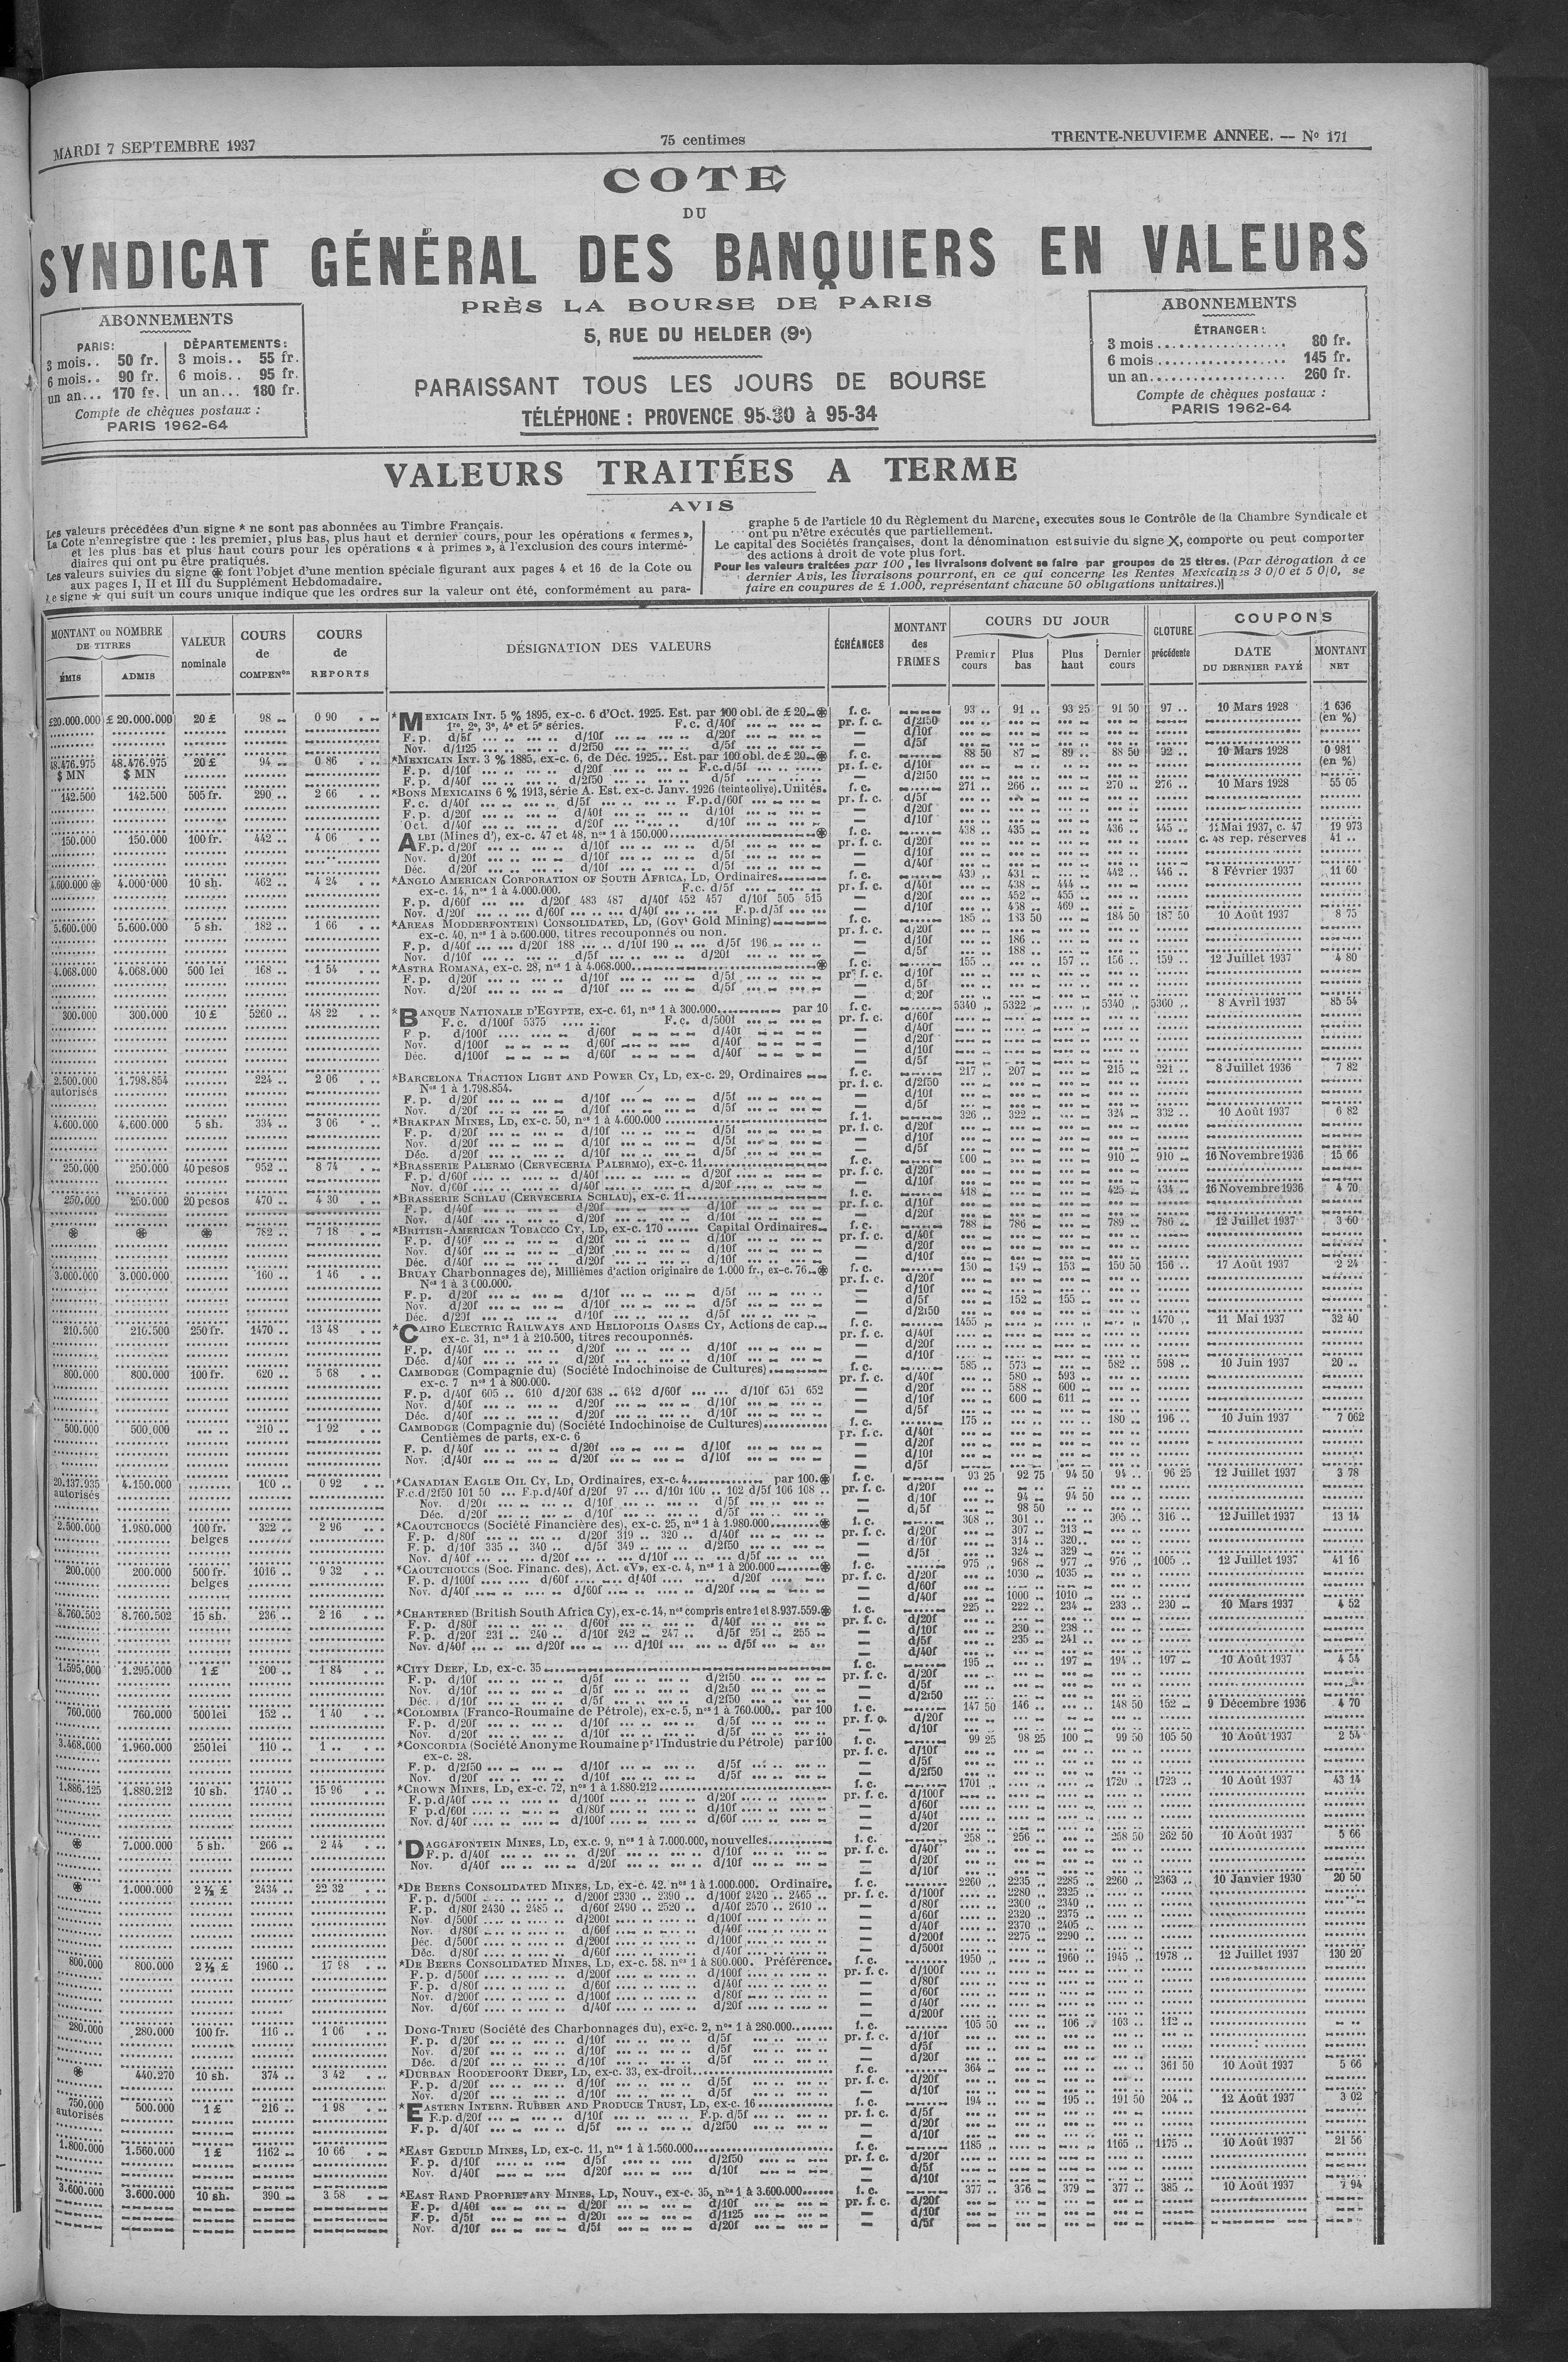 MARDI 7 SEPTEMBRE 1937
75 centimes
TRENTE-NEUVIEME ANNEE. — No 171
COTE
DU
SYNDICAT GÉNÉRAL DES BANQUIERS EN VALEURS
PRÈS LA BOURSE DE PARIS
5, RUE DU HELDER (9e)
PARAISSANT TOUS LES JOURS DE BOURSE
TÉLÉPHONE : PROVENCE 95-30 à 95-34
ABONNEMENTS
PARIS: DÉPARTEMENTS:
3 mois.. 50 fr. 3 mois.. 55 fr.
6 mois.. 90 fr. 6 mois.. 95 fr.
un an... 170 fr. un an... 180 fr.
Compte de chèques postaux :
PARIS 1962-64
ABONNEMENTS
ÉTRANGER:
3 mois 80 fr.
6 mois 145 fr.
un an 260 fr.
Compte de chèques postaux :
PARIS 1962-64
VALEURS TRAITÉES A TERME
AVIS
Les valeurs précédées d'un signe * ne sont pas abonnées au Timbre Français.
La Cote n'enregistre que : les premier, plus bas, plus haut et dernier cours, pour les opérations « fermes »,
et les plus bas et plus haut cours pour les opérations « à primes », à l'exclusion des cours intermé-
diaires qui ont pu être pratiqués.
Les valeurs suivies du signe ⊛ font l'objet d'une mention spéciale figurant aux pages 4 et 16 de la Cote ou
aux pages I, II et III du Supplément Hebdomadaire.
Le signe * qui suit un cours unique indique que les ordres sur la valeur ont été, conformément au para-
graphe 5 de l'article 10 du Règlement du Marché, exécutés sous le Contrôle de la Chambre Syndicale et
ont pu n'être exécutés que partiellement.
Le capital des Sociétés françaises, dont la dénomination est suivie du signe X, comporte ou peut comporter
des actions à droit de vote plus fort.
Pour les valeurs traitées par 100, les livraisons doivent se faire par groupes de 25 titres. (Par dérogation à ce
dernier Avis, les livraisons pourront, en ce qui concerne les Rentes Mexicaines 3 0/0 et 5 0/0, se
faire en coupures de £ 1.000, représentant chacune 50 obligations unitaires.)
MONTANT ou NOMBRE DE TITRES
ÉMIS ADMIS
VALEUR nominale
COURS de COMPENon
COURS de REPORTS
DÉSIGNATION DES VALEURS
ÉCHÉANCES
MONTANT des PRIMES
COURS DU JOUR
Premier cours Plus bas Plus haut Dernier cours
CLOTURE précédente
COUPONS
DATE DU DERNIER PAYÉ
MONTANT NET
£20.000.000 £ 20.000.000 20 £ 98 0 90 *MEXICAIN INT. 5 % 1895, ex-c. 6 d'Oct. 1925. Est. par 100 obl. de £ 20 ⊛ f. c. 93 91 93 25 91 50 97 10 Mars 1928 1 636
1re, 2e, 3e, 4e et 5e séries. F.c. d/40f pr. f. c. d/2f50 (en %)
F. p. d/5f d/10f d/20f — d/10f
Nov. d/1f25 d/2f50 d/5f — d/5f
48.476.975 48.476.975 20 £ 94 0 86 *MEXICAIN INT. 3 % 1885, ex-c. 6, de Déc. 1925.. Est. par 100 obl. de £ 20 ⊛ f. c. 88 50 87 89 88 50 92 10 Mars 1928 0 981
$ MN $ MN F. p. d/10f d/20f F.c. d/5f pr. f. c. d/10f (en %)
F. p. d/40f d/2f50 d/5f — d/2f50
142.500 142.500 505 fr. 290 2 66 *BONS MEXICAINS 6 % 1913, série A. Est. ex-c. Janv. 1926 (teinte olive). Unités. f. c. 271 266 270 276 10 Mars 1928 55 05
F. c. d/40f d/5f F.p. d/60f pr. f. c. d/5f
F. p. d/20f d/40f d/10f — d/20f
Oct. d/40f d/20f d/10f — d/10f
150.000 150.000 100 fr. 442 4 06 ALBI (Mines d'), ex-c. 47 et 48, nos 1 à 150.000 ⊛ f. c. 438 435 436 445 11 Mai 1937, c. 47 19 973
F. p. d/20f d/10f d/5f pr. f. c. d/20f c. 48 rep. réserves 41
Nov. d/20f d/10f d/5f — d/10f
Déc. d/20f d/10f d/5f — d/40f
4.600.000 ⊛ 4.000.000 10 sh. 462 4 24 *ANGLO AMERICAN CORPORATION OF SOUTH AFRICA, LD, Ordinaires f. c. 439 431 442 446 8 Février 1937 11 60
ex-c. 14, nos 1 à 4.000.000. F.c. d/5f pr. f. c. d/40f 438 444
F. p. d/60f d/20f 483 487 d/40f 452 457 d/10f 505 515 — d/20f 452 455
Nov. d/20f d/60f d/40f F.p. d/5f — d/10f 458 469
5.600.000 5.600.000 5 sh. 182 1 66 *AREAS MODDERFONTEIN CONSOLIDATED, LD, (Govt Gold Mining) f. c. 185 183 50 184 50 187 50 10 Août 1937 8 75
ex-c. 40, nos 1 à 5.600.000, titres recouponnés ou non. pr. f. c. d/20f
F. p. d/40f d/20f 188 d/10f 190 d/5f 196 — d/10f 186
Nov. d/10f d/5f d/20f — d/5f 188
4.068.000 4.068.000 500 lei 168 1 54 *ASTRA ROMANA, ex-c. 28, nos 1 à 4.068.000 ⊛ f. c. 155 157 156 159 12 Juillet 1937 4 80
F. p. d/20f d/10f d/5f pr. f. c. d/10f
Nov. d/20f d/10f d/5f — d/5f
— d/20f
300.000 300.000 10 £ 5260 48 22 *BANQUE NATIONALE D'EGYPTE, ex-c. 61, nos 1 à 300.000 par 10 f. c. 5340 5322 5340 5360 8 Avril 1937 85 54
F. c. d/100f 5375 F. c. d/500f pr. f. c. d/60f
F. p. d/100f d/60f d/40f — d/40f
Nov. d/100f d/60f d/40f — d/20f
Déc. d/100f d/60f d/40f — d/10f
— d/5f
2.500.000 1.798.854 224 2 06 *BARCELONA TRACTION LIGHT AND POWER CY, LD, ex-c. 29, Ordinaires f. c. 217 207 215 221 8 Juillet 1936 7 82
autorisés Nos 1 à 1.798.854. pr. f. c. d/2f50
F. p. d/20f d/10f d/5f — d/10f
Nov. d/20f d/10f d/5f — d/5f
4.600.000 4.600.000 5 sh. 334 3 06 *BRAKPAN MINES, LD, ex-c. 50, nos 1 à 4.600.000 f. 1. 326 322 324 332 10 Août 1937 6 82
F. p. d/20f d/10f d/5f pr. f. c. d/20f
Nov. d/20f d/10f d/5f — d/10f
Déc. d/20f d/10f d/5f — d/5f
250.000 250.000 40 pesos 952 8 74 *BRASSERIE PALERMO (CERVECERIA PALERMO), ex-c. 11 f. c. 900 910 910 16 Novembre 1936 15 66
F. p. d/60f d/40f d/20f pr. f. c. d/20f
Nov. d/60f d/40f d/20f — d/10f
250.000 250.000 20 pesos 470 4 30 *BRASSERIE SCHLAU (CERVECERIA SCHLAU), ex-c. 11 f. c. 418 425 434 16 Novembre 1936 4 70
F. p. d/40f d/20f d/10f pr. f. c. d/10f
Nov. d/40f d/20f d/10f — d/20f
⊛ ⊛ ⊛ 782 7 18 *BRITISH-AMERICAN TOBACCO CY, LD, ex-c. 170 Capital Ordinaires f. c. 788 786 789 786 12 Juillet 1937 3 60
F. p. d/40f d/20f d/10f pr. f. c. d/40f
Nov. d/40f d/20f d/10f — d/20f
Déc. d/40f d/20f d/10f — d/10f
3.000.000 3.000.000 160 1 46 BRUAY Charbonnages de), Millièmes d'action originaire de 1.000 fr., ex-c. 76 ⊛ f. c. 150 149 153 150 50 156 17 Août 1937 2 24
Nos 1 à 3.000.000. pr. f. c. d/20f
F. p. d/20f d/10f d/5f — d/10f
Nov. d/20f d/10f d/5f — d/5f 152 155
Déc. d/20f d/10f d/5f — d/2f50
210.500 210.500 250 fr. 1470 13 48 *CAIRO ELECTRIC RAILWAYS AND HELIOPOLIS OASES CY, Actions de cap. f. c. 1455 1470 11 Mai 1937 32 40
ex-c. 31, nos 1 à 210.500, titres recouponnés. pr. f. c. d/40f
F. p. d/40f d/20f d/10f — d/20f
Déc. d/40f d/20f d/10f — d/10f
800.000 800.000 100 fr. 620 5 68 CAMBODGE (Compagnie du) (Société Indochinoise de Cultures) f. c. 585 573 582 598 10 Juin 1937 20
ex-c. 7 nos 1 à 800.000. pr. f. c. d/40f 580 593
F. p. d/40f 605 610 d/20f 638 642 d/60f d/10f 651 652 — d/20f 588 600
Nov. d/40f d/20f d/10f — d/10f 600 611
Déc. d/40f d/20f d/10f — d/5f
500.000 500.000 210 1 92 CAMBODGE (Compagnie du) (Société Indochinoise de Cultures) f. c. 175 180 196 10 Juin 1937 7 062
Centièmes de parts, ex-c. 6 pr. f. c. d/40f
F. p. d/40f d/20f d/10f — d/20f
Nov. d/40f d/20f d/10f — d/10f
— d/5f
20.137.935 4.150.000 100 0 92 *CANADIAN EAGLE OIL CY, LD, Ordinaires, ex-c. 4 par 100. ⊛ f. c. 93 25 92 75 94 50 94 96 25 12 Juillet 1937 3 78
autorisés F.c. d/2f50 101 50 F.p. d/40f d/20f 97 d/10f 100 102 d/5f 106 108 pr. f. c. d/20f
Nov. d/20f d/10f d/5f — d/10f 94 94 50
Déc. d/20f d/10f d/5f — d/5f 98 50
2.500.000 1.980.000 100 fr. 322 2 96 *CAOUTCHOUCS (Société Financière des), ex-c. 25, nos 1 à 1.980.000 ⊛ f. c. 308 301 305 316 12 Juillet 1937 13 14
belges F. p. d/80f d/20f 319 320 d/40f pr. f. c. d/20f 307 313
F. p. d/10f 335 340 d/5f 349 d/2f50 — d/10f 314 320
Nov. d/40f d/20f d/10f d/5f — d/5f 324 329
200.000 200.000 500 fr. 1016 9 32 *CAOUTCHOUCS (Soc. Financ. des), Act. «V», ex-c. 4, nos 1 à 200.000 ⊛ f. c. 975 968 977 976 1005 12 Juillet 1937 41 16
belges F. p. d/100f d/60f d/40f d/20f pr. f. c. d/20f 1030 1035
Nov. d/40f d/60f d/20f — d/60f
— d/40f 1000 1010
8.760.502 8.760.502 15 sh. 236 2 16 *CHARTERED (British South Africa Cy), ex-c. 14, nos compris entre 1 et 8.937.559. ⊛ f. c. 225 222 234 233 230 10 Mars 1937 4 52
F. p. d/80f d/60f d/40f pr. f. c. d/20f
F. p. d/20f 231 240 d/10f 242 247 d/5f 251 255 — d/10f 230 238
Nov. d/40f d/20f d/10f d/5f — d/5f 235 241
— d/40f
1.595.000 1.295.000 1 £ 200 1 84 *CITY DEEP, LD, ex-c. 35 f. c. 195 197 194 197 10 Août 1937 4 54
F. p. d/10f d/5f d/2f50 pr. f. c. d/20f
Nov. d/10f d/5f d/2f50 — d/5f
Déc. d/10f d/5f d/2f50 — d/2f50
760.000 760.000 500 lei 152 1 40 *COLOMBIA (Franco-Roumaine de Pétrole), ex-c. 5, nos 1 à 760.000.. par 100 f. c. 147 50 146 148 50 152 9 Décembre 1936 4 70
F. p. d/20f d/10f d/5f pr. f. c. d/20f
Nov. d/20f d/10f d/5f — d/10f
3.468.000 1.960.000 250 lei 110 1 *CONCORDIA (Société Anonyme Roumaine pr l'Industrie du Pétrole) par 100 f. c. 99 25 98 25 100 99 50 105 50 10 Août 1937 2 54
ex-c. 28. pr. f. c. d/10f
F. p. d/2f50 d/10f d/5f — d/5f
Nov. d/20f d/10f d/5f — d/2f50
1.886.125 1.880.212 10 sh. 1740 15 96 *CROWN MINES, LD, ex-c. 72, nos 1 à 1.880.212 f. c. 1701 1720 1723 10 Août 1937 43 14
F. p. d/40f d/100f d/20f pr. f. c. d/100f
F p. d/60f d/80f d/10f — d/60f
Nov. d/40f d/100f d/60f — d/40f
— d/20f
⊛ 7.000.000 5 sh. 266 2 44 *DAGGAFONTEIN MINES, LD, ex.c. 9, nos 1 à 7.000.000, nouvelles f. c. 258 256 258 50 262 50 10 Août 1937 5 66
F. p. d/40f d/20f d/10f pr. f. c. d/40f
Nov. d/40f d/20f d/10f — d/20f
— d/10f
⊛ 1.000.000 2 ½ £ 2434 22 32 *DE BEERS CONSOLIDATED MINES, LD, ex-c. 42. nos 1 à 1.000.000. Ordinaire. f. c. 2260 2235 2285 2260 2363 10 Janvier 1930 20 50
F. p. d/500f d/200f 2330 2390 d/100f 2420 2465 pr. f. c. d/100f 2280 2325
F. p. d/80f 2430 2485 d/60f 2490 2520 d/40f 2570 2610 — d/80f 2300 2340
Nov. d/500f d/200f d/100f — d/60f 2320 2375
Nov. d/80f d/60f d/40f — d/40f 2370 2405
Déc. d/500f d/200f d/100f — d/200f 2275 2290
Déc. d/80f d/60f d/40f — d/500f
800.000 800.000 2 ½ £ 1960 17 98 *DE BEERS CONSOLIDATED MINES, LD, ex-c. 58. nos 1 à 800.000. Préférence. f. c. 1950 1960 1945 1978 12 Juillet 1937 130 20
F. p. d/500f d/200f d/100f pr. f. c. d/100f
F. p. d/80f d/60f d/40f — d/80f
Nov. d/200f d/100f d/80f — d/60f
Nov. d/60f d/40f d/20f — d/40f
— d/200f
280.000 280.000 100 fr. 116 1 06 DONG-TRIEU (Société des Charbonnages du), ex-c. 2, nos 1 à 280.000 f. c. 105 50 106 103 112
F. p. d/20f d/10f d/5f pr. f. c. d/10f
Nov. d/20f d/10f d/5f — d/5f
Déc. d/20f d/10f d/5f — d/20f
⊛ 440.270 10 sh. 374 3 42 *DURBAN ROODEPOORT DEEP, LD, ex-c. 33, ex-droit f. c. 364 361 50 10 Août 1937 5 66
F. p. d/20f d/10f d/5f pr. f. c. d/20f
Nov. d/20f d/10f d/5f — d/10f
750.000 500.000 1 £ 216 1 98 *EASTERN INTERN. RUBBER AND PRODUCE TRUST, LD, ex-c. 16 f. c. 194 195 191 50 204 12 Août 1937 3 02
autorisés F.p. d/20f d/10f F.p. d/5f pr. f. c. d/5f
F. p. d/40f d/5f d/2f50 — d/20f
— d/10f
1.800.000 1.560.000 1 £ 1162 10 66 *EAST GEDULD MINES, LD, ex-c. 11, nos 1 à 1.560.000 f. c. 1185 1185 1165 1175 10 Août 1937 21 56
F. p. d/10f d/5f d/2f50 pr. f. c. d/20f
Nov. d/40f d/20f d/10f — d/5f
— d/10f
3.600.000 3.600.000 10 sh. 390 3 58 *EAST RAND PROPRIETARY MINES, LD, Nouv., ex-c. 35, nos 1 à 3.600.000 f. c. 377 376 379 377 385 10 Août 1937 7 94
F. p. d/40f d/20f d/10f pr. f. c. d/20f
F. p. d/5f d/20f d/1f25 — d/10f
Nov. d/10f d/5f d/20f — d/5f